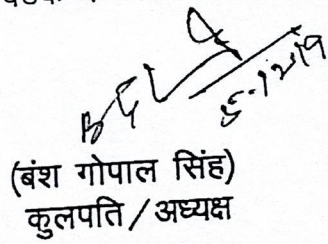 5-12-19
(बंश गोपाल सिंह)
कुलपति / अध्यक्ष